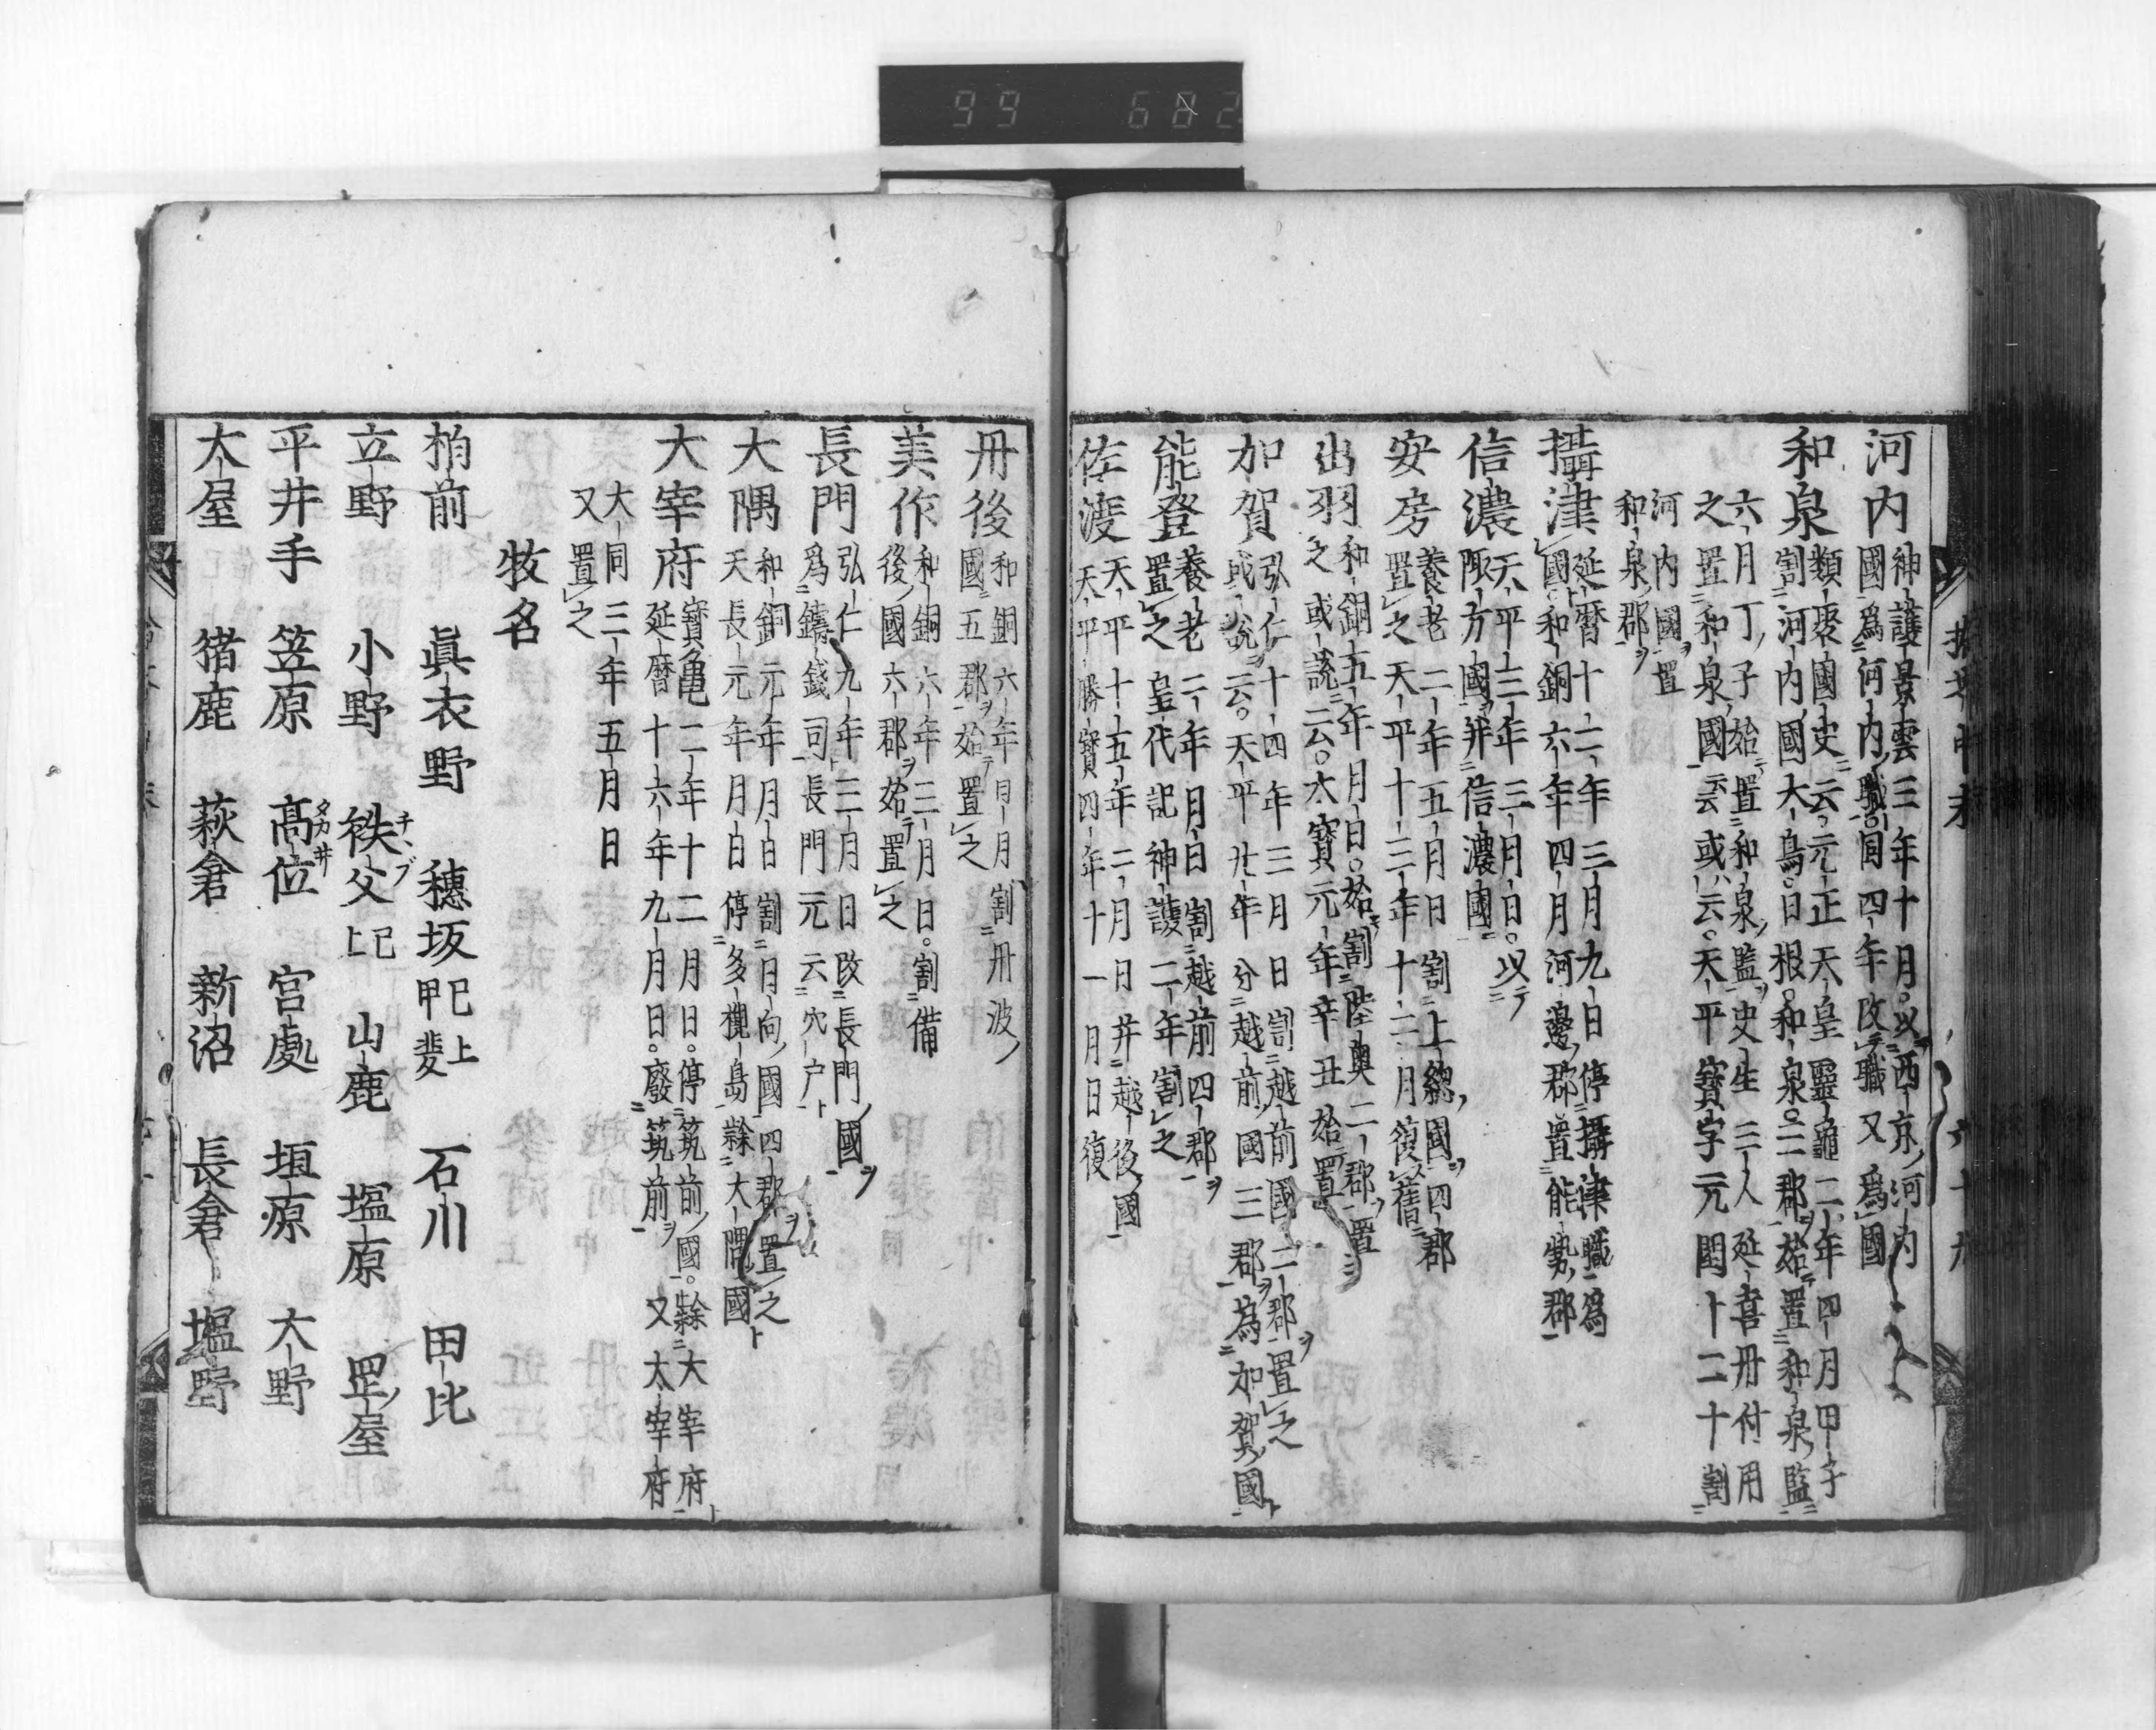 99 682
河内 神護景雲三年十月以西京河内
國爲河内職同四年改職又爲國
和泉 類聚國史云元正天皇靈龜二年四月甲子
割河内國大鳥日根和泉三郡始置和泉監
六月丁子始置和泉監史生三人延喜丹付用
之置和泉國云或云天平寳字元閏十二十割
河内國置
和泉郡
攝津 延暦十二年三月九日停攝津職爲
國和銅六年四月河邊郡置能勢郡
信濃 天平十三年三月日以
諏方國并信濃國
安房 養老二年五月日割上總國四郡
置之天平十三年十二月復舊
出羽 和銅五年月日始割陸奥二郡置
之或説云大寳元年辛丑始置
加賀 弘仁十四年三月日割越前國二郡置之
或説云天平廿年分越前國三郡為加賀國
能登 養老二年月日割越前四郡
置之皇代記神護二年割之
佐渡 天平十五年二月日并越後國
天平勝寳四年十一月日復
丹後 和銅六年月日割丹波
國五郡始置之
美作 和銅六年三月日割備
後國六郡始置之
長門 弘仁九年三月日改長門國
爲鑄錢司長門元云穴戸
大隅 和銅元年月日割日向國四郡置之
天長元年月日停多褹島隷大隅國
大宰府 寳亀二年十二月日停筑前國隷大宰府
延暦十六年九月日廢筑前又太宰府
大同三年五月日
又置之
牧名
柏前 眞衣野 穗坂 巳上甲斐 石川 田比
立野 小野 秩父 チヽブ 巳上 山鹿 塩原 罡屋
平井手 笠原 髙位 タカ井 宮處 垣原 大野
大屋 猪鹿 萩倉 新沼 長倉 塩野